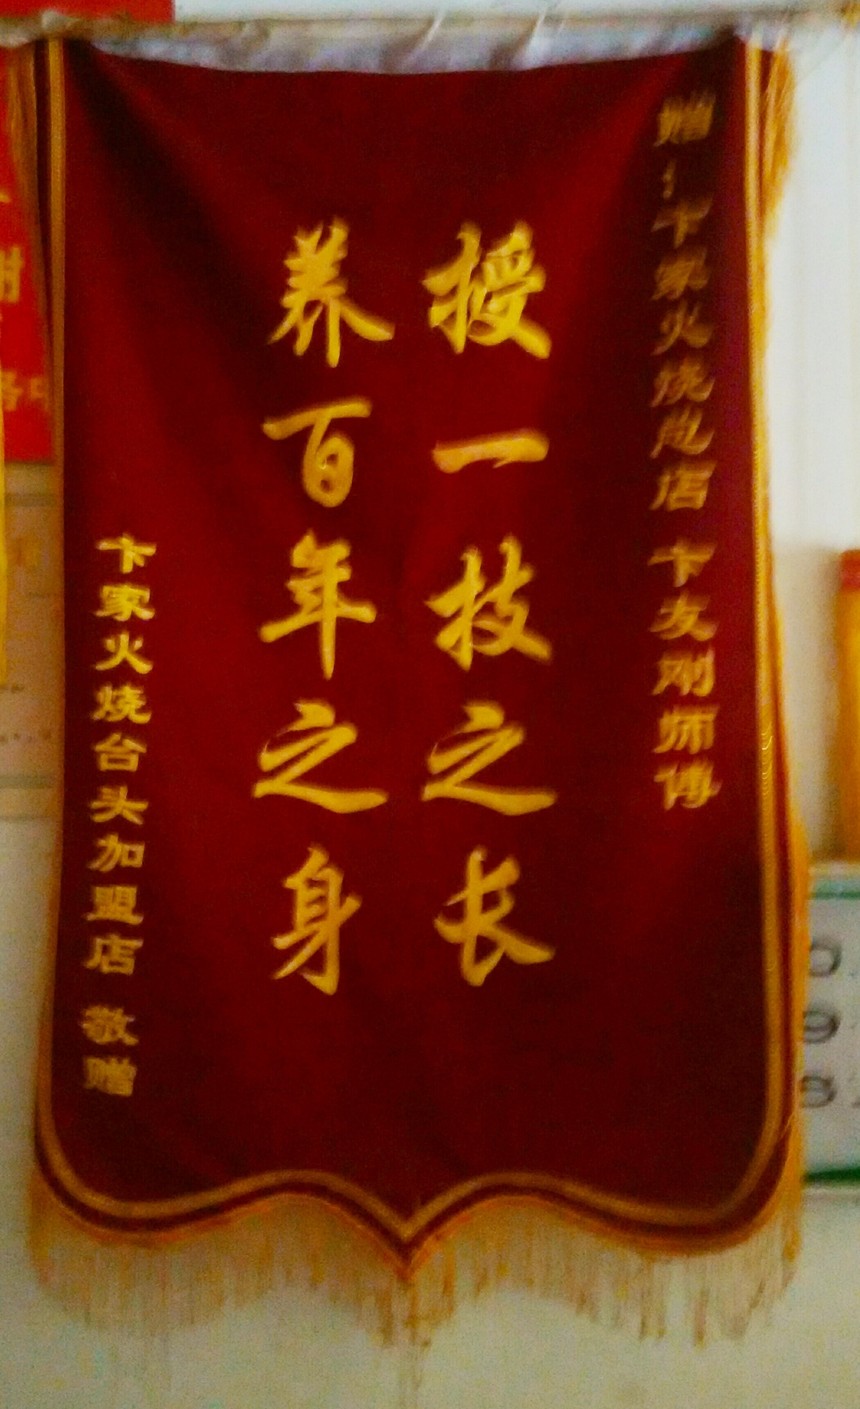 赠：卞家火烧总店 卞友刚师傅
授一技之长
养百年之身
卞家火烧台头加盟店 敬赠